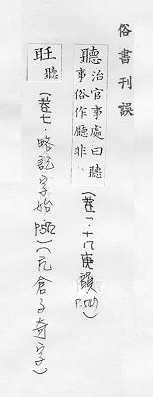 俗書刊誤
聽 治官事處曰聽
事俗作廳非
(卷一.十八庚韻
旺 聽
(卷七.略記字始 (亢倉子奇字)